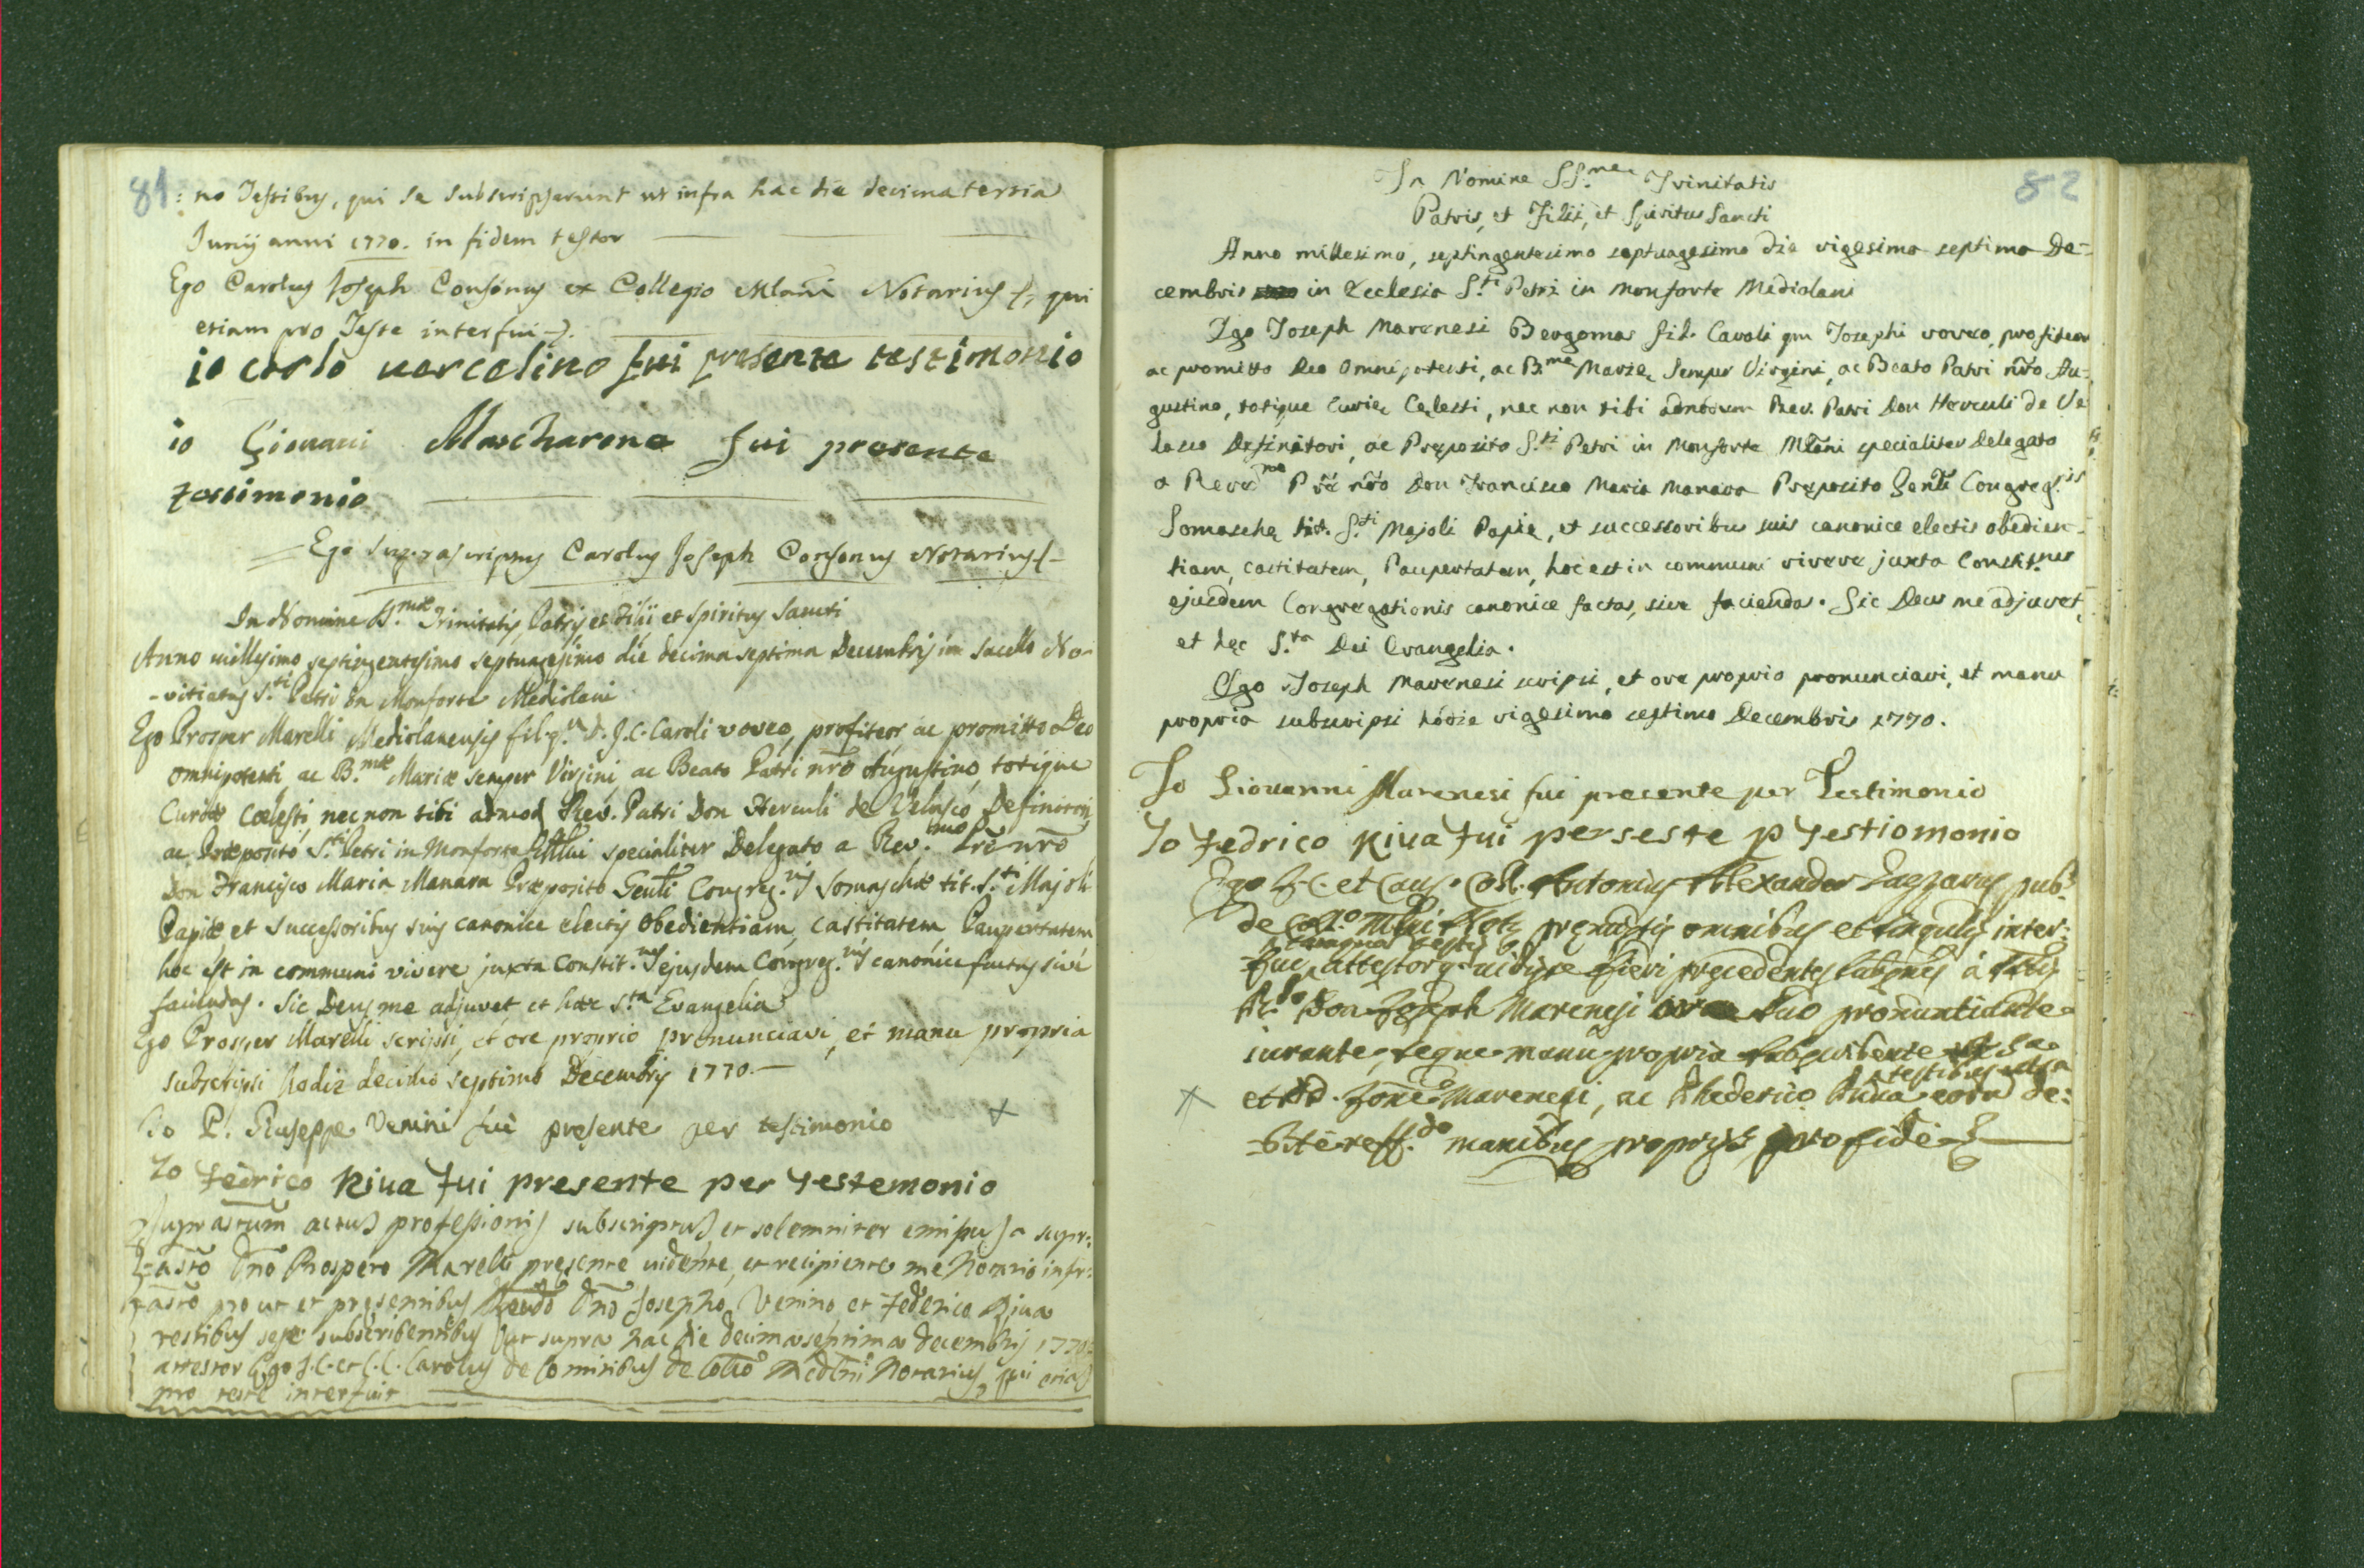 81
: no Testibus, qui se subscripserunt ut infra hac die decimatertia
Junij anni 1770. in fidem testor
Ego Carolus Joseph Consonus ex Collegio Mlani Notarius f, qui
etiam pro Teste interfui
io carlo vercelino fui presente testimonio
io Giovani Mascharone fui presente
testimonio
Ego suprascriptus Carolus Joseph Consonus Notarius f
In Nomine SS.mæ Trinitatis, Patris et Filii et Spiritus Sancti
Anno millesimo septingentesimo septuagesimo die decima septima Decembris in sacello No-
-vitiatus S.ti Petri in Monforte Mediolani
Ego Prosper Marelli Mediolanensis fil. q.m D. J.C. Caroli voveo, profiteor ac promitto Deo
omnipotenti ac B.mæ Mariæ semper Virgini, ac Beato Patri nro Augustino, totique
Curiæ Cœlesti, nec non tibi admod Rev. Patri Don Herculi de Velasco, Definitori,
ac Præposito S.ti Petri in Monforte specialiter Delegato a Rev.mo Pre nro
Don Francisco Maria Manara Præposito Genli Congreg.nis Somaschæ tit. S.ti Majoli
Papiæ, et successoribus suis canonice electis obedientiam, castitatem Paupertatem
hoc est in communi vivere juxta Constit.nes ejusdem Congreg.nis canonice factas sive
faciendas. Sic Deus me adjuvet et hæc S.ta Evangelia
Ego Prosper Marelli scripsi, et ore proprio pronunciavi, et manu propria
subscripsi hodie decimo septimo Decembris 1770.—
Io P. Giuseppe Venini fui presente per testimonio
Io Fedrico Riva fui presente per testemonio
Suprastum actus professionis subscriptus, et solemniter emissus a supr:
astõ Dno Prospero Marelli presente vidente, et recipiente me Notario infr:
astõ pro ut et presentibus Rendo Dno Josepho Venino et Federico Riva
testibus sese subscribentibus ut supra hac die decimaseptima decembris 1770
attestor Ego J.C. et C.C. Carolus de Cominibus de Collo Medlni Notarius, qui etia
pro teste interfui
82
In Nomine SS.mæ Trinitatis
Patris, et Filii, et Spiritus Sancti
Anno millesimo, septingentesimo septuagesimo die vigesima septima De-
cembris in Ecclesia S.ti Petri in Monforte Mediolani
Ego Joseph Marenesi Bergomas fil. Caroli qm Josephi voveo, profiteor
ac promitto Deo Omnipotenti, ac B.mę Marię semper Virgini, ac Beato Patri nr̃o Au-
gustino, totique Curię Cęlesti, nec non tibi admodum Rev. Patri Don Herculi de Ve
lasco Definitori, ac Pręposito S.ti Petri in Monforte Mlãni specialiter Delegato
a Revd.mo Pr̃e nr̃o Don Francisco Maria Manara Pręposito Genli Congreg.nis
Somaschę tit. S.ti Majoli Papię, et successoribus suis canonice electis obedien-
tiam, castitatem, Paupertatem, hoc est in communi vivere juxta Constit.nes
ejusdem Congregationis canonice factas, sive faciendas. Sic Deus me adjuvet,
et hęc S.ta Dei Evangelia.
Ego Joseph Marenesi scripsi, et ore proprio pronunciavi, et manu
propria subscripsi hodie vigesimo septimo Decembris 1770.
Io Giovanni Marenesi fui presente per Testimonio
Io Fedrico Riva fui perseste p testiomonio
Ego J.C. et Caus. Coll. Antonius Alexander pub.s
de Coll.o Mlni pręmissis omnibus et singulis inter:
tamquam testis
fui, attestor q. vidisse fieri precedentes a
R.do Don Joseph Marenesi ore suo pronuntiante
iurante, seque manu propria subscribente
testibus
et D. Jone Marenesi, ac Phederico Riva de:
manibus proprys pro fide